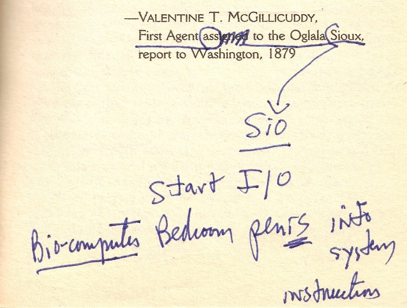 —VALENTINE T. MCGILLICUDDY,
First Agent assigned to the Oglala Sioux,
report to Washington, 1879
Sio
Start I/O
Bio-computes Bedroom penis into
system
instruction